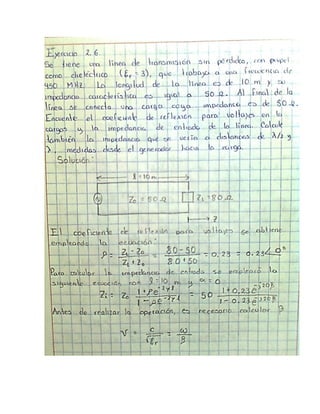 Ejercicio 2.6
Se tiene una línea de transmisión sin pérdidas, con papel
como dieléctrico (εr = 3), que trabaja a una frecuencia de
450 MHz. La longitud de la línea es de 10 m y su
impedancia característica es igual a 50 Ω. Al final de la
línea se conecta una carga cuya impedancia es de 80 Ω.
Encuentre el coeficiente de reflexión para voltajes en la
carga y la impedancia de entrada de la línea. Calcule
también la impedancia que se vería a distancias de λ/2 y
λ, medidas desde el generador hacia la carga.
Solución:
l = 10 m
Z₀ = 50 Ω
Z₁ = 80 Ω
z
El coeficiente de reflexión para voltajes se obtiene
empleando la ecuación:
ρ = (Z₁ - Z₀)/(Z₁ + Z₀) = (80 - 50)/(80 + 50) = 0.23 = 0.23∠0°
Para calcular la impedancia de entrada se empleará la
siguiente ecuación con l = 10 m y α = 0
Zi = Z₀ (1 + ρe^-2γl)/(1 - ρe^-2γl) = 50 (1 + 0.23e^-j20β)/(1 - 0.23e^-j20β)
Antes de realizar la operación, es necesario calcular β
V = c/√εr = ω/β